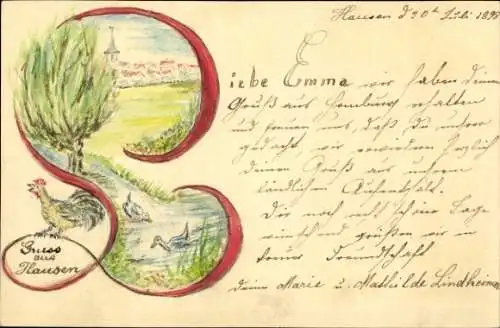 Hausen d 20ᵗ Juli 1897
Liebe Emma wir haben deinen
Gruß aus Homburg erhalten
und freuen uns, daß Du unserer
gedacht, wir erwiedern herzlich
deinen Gruß aus unserm
ländlichen Aufenthalt.
Dir noch recht schöne Tage
wünschend grüßen wir in
treuer Freundschaft
deine Marie u. Mathilde Lindheimer
Gruss
aus
Hausen